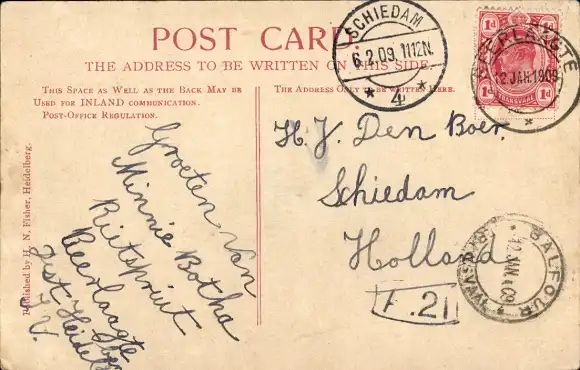 POST CARD.
THE ADDRESS TO BE WRITTEN ON THIS SIDE.
THIS SPACE AS WELL AS THE BACK MAY BE
USED FOR INLAND COMMUNICATION.
POST-OFFICE REGULATION.
THE ADDRESS ONLY TO BE WRITTEN HERE.
SCHIEDAM
6.2.09. 11-12N.
* 4 *
1d 1d
TRANSVAAL
1d 1d
BEERLAAGTE
12 JAN. 1909
Groeten Van
Minnie Botha
Rietspruit
Beerlaagte
Dest. Heidelberg
T V.
H. J. Den Boer.
Schiedam
Holland
F.21
BALFOUR
12 JAN 09
TRANSVAAL
Published by H. N. Fisher, Heidelberg.